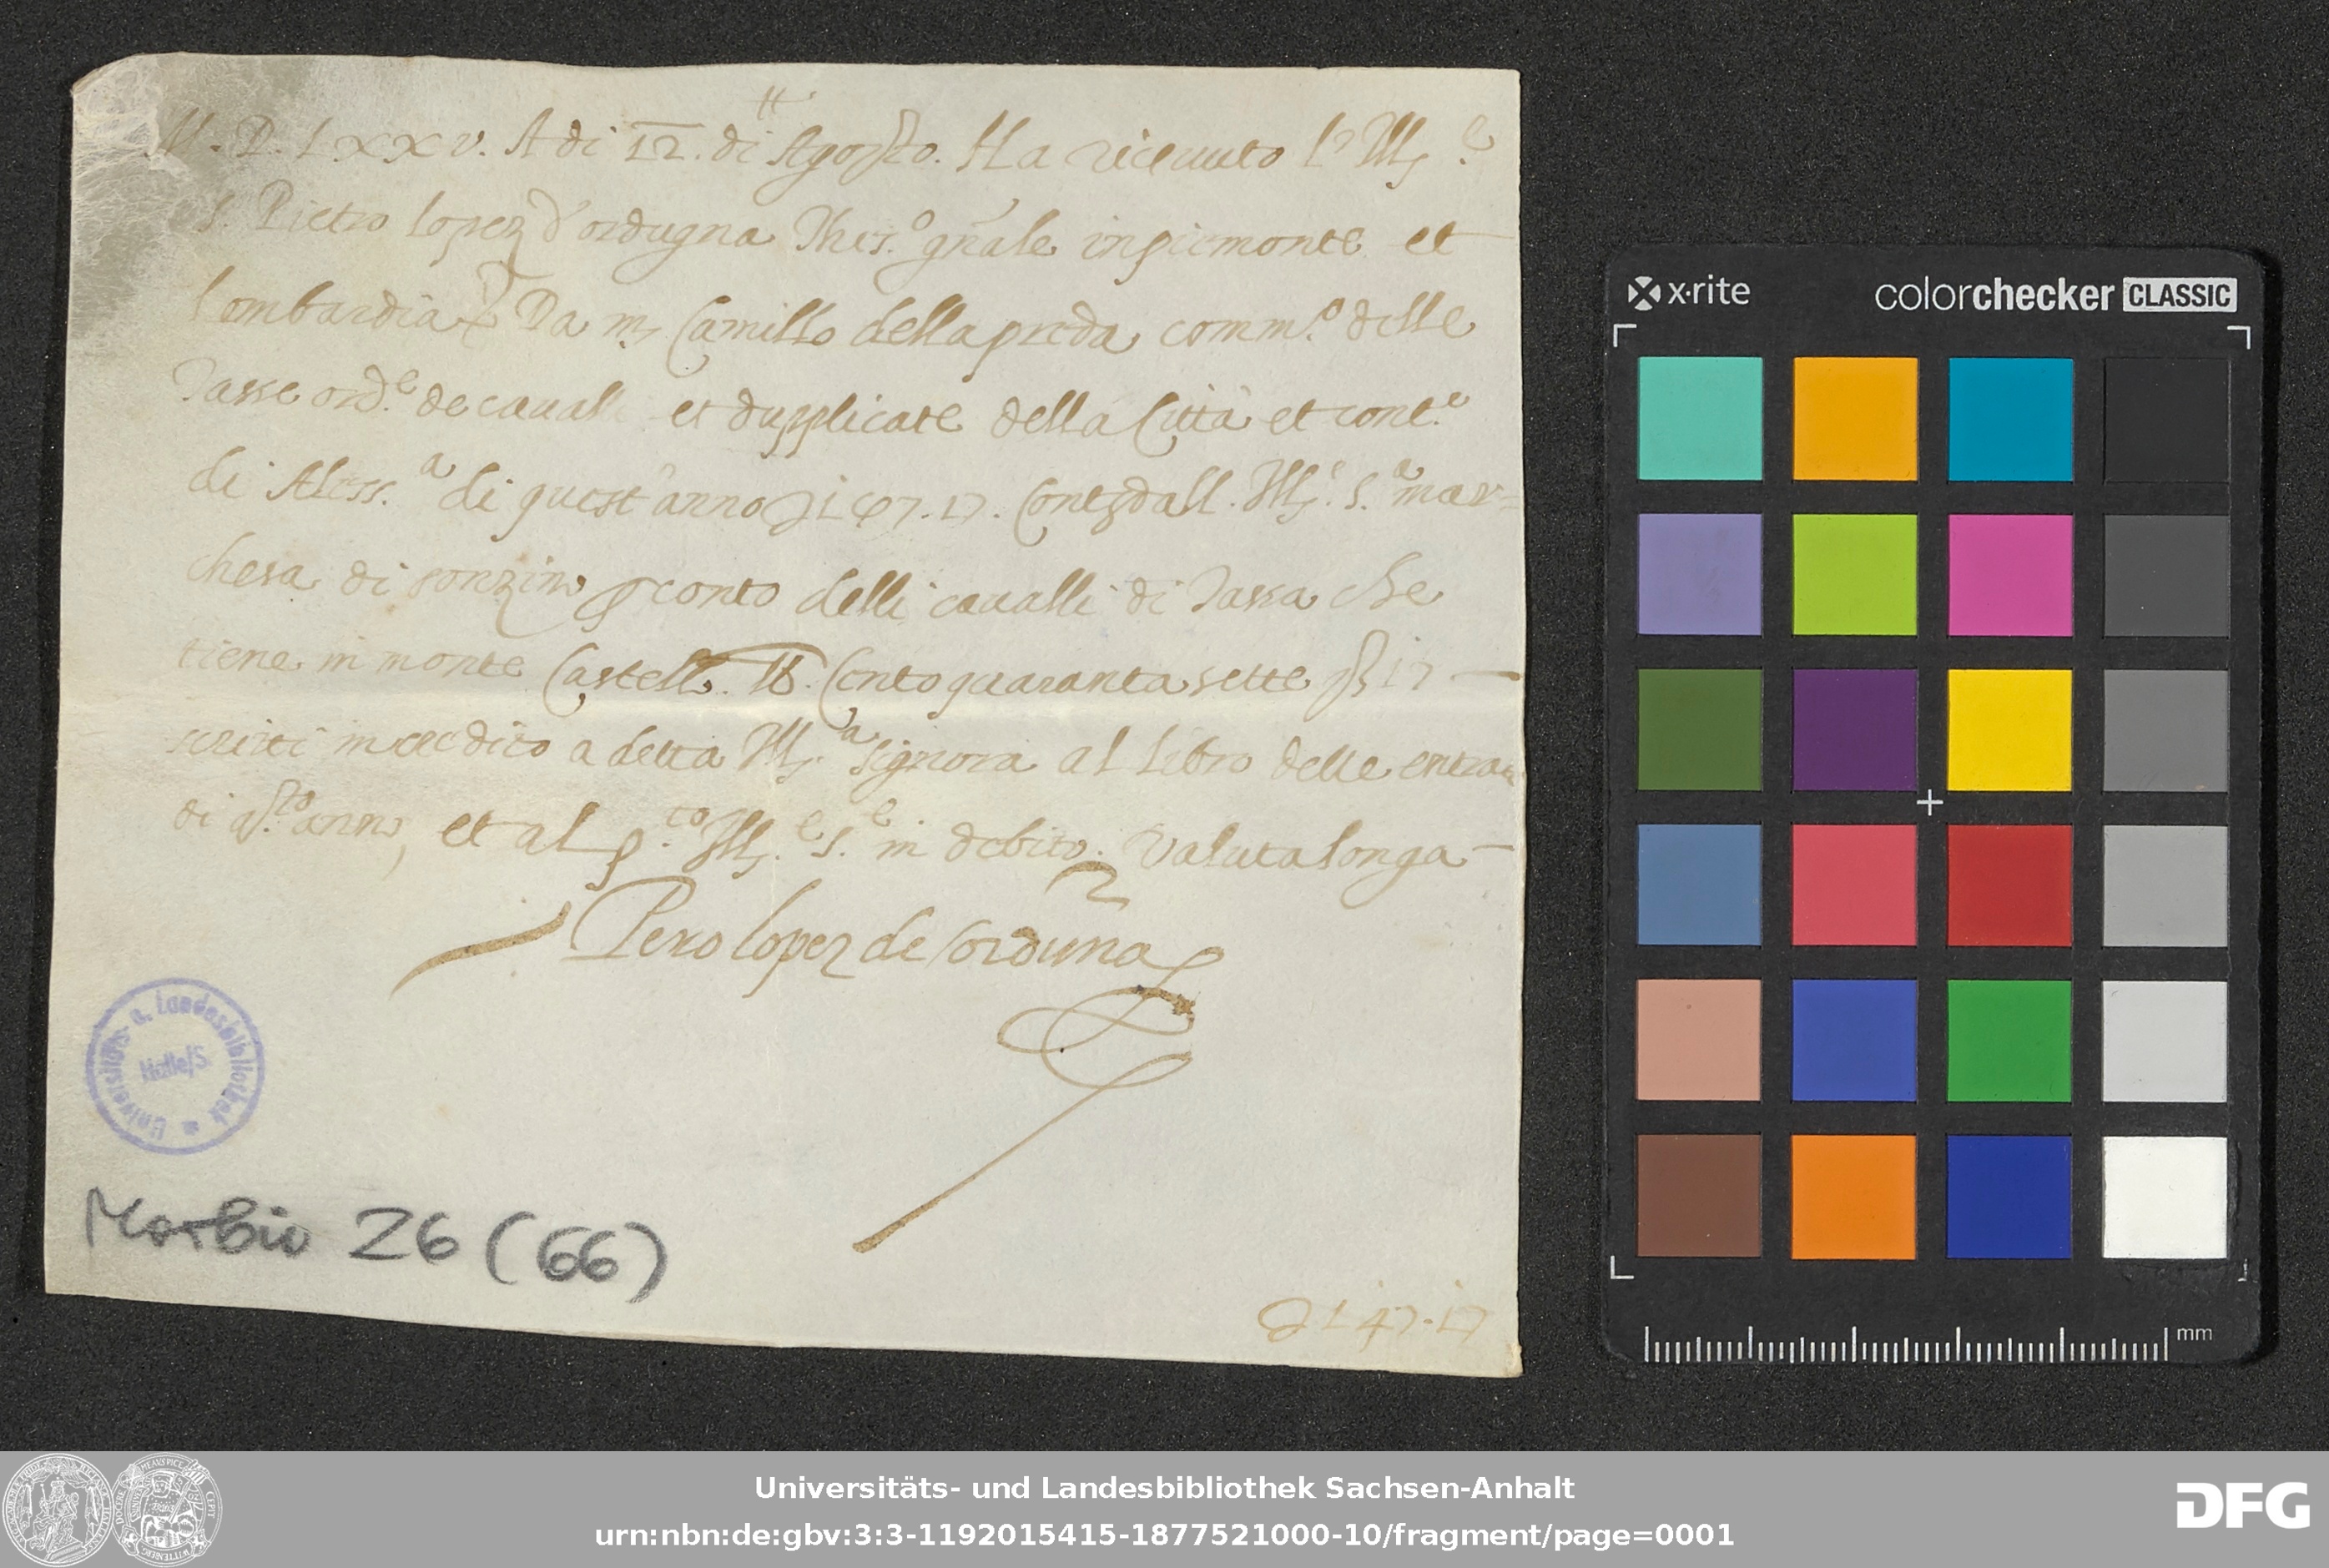 M. D. LXXV. A di 12. di Agosto. Ha riceuuto l' Mg.e
S. Pietro Lopez d'ordugna Thes.o gnãle in piemonte et
Lombardia Da m. Camillo della preda comm.o delle
Tasse ord.e de caualli et dupplicate della Città et cont.o
di Aless.a di quest'anno L 147.17. Cont. dall. Mg.e S.a mar=
chesa di conto delli caualli di Tassa che
tiene in monte Castell. lb. Cento quaranta sette ß 17 —
scritti in credito a detta Mg.a Signora al Libro delle entrate
di d.to anno, et al p.to Mg.e S.e in debito. Valuta longa —
Pero lopez de orduña
Universitäts- u. Landesbibliothek
Halle/S.
Morbio Z6 (66)
L 147.17
x·rite
colorchecker CLASSIC
mm
Universitäts- und Landesbibliothek Sachsen-Anhalt
urn:nbn:de:gbv:3:3-1192015415-1877521000-10/fragment/page=0001
DFG